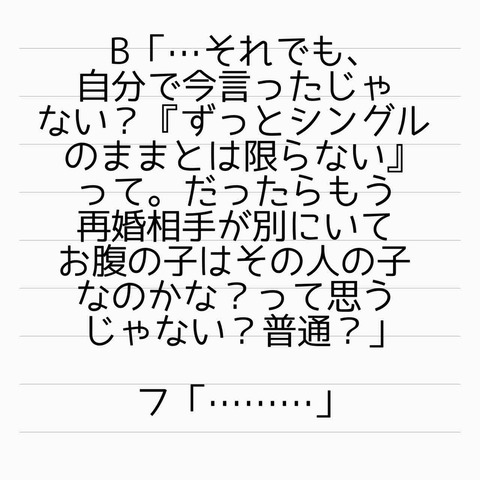 B「…それでも、
自分で今言ったじゃ
ない？『ずっとシングル
のままとは限らない』
って。だったらもう
再婚相手が別にいて
お腹の子はその人の子
なのかな？って思う
じゃない？普通？」
フ「………」